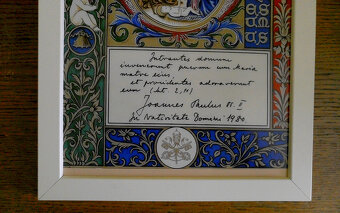 Intrantes domum
invenerunt puerum cum Maria
matre eius,
et procidentes adoraverunt
eum (Mt. 2, 11)
Joannes Paulus PP. II
In Nativitate Domini 1980